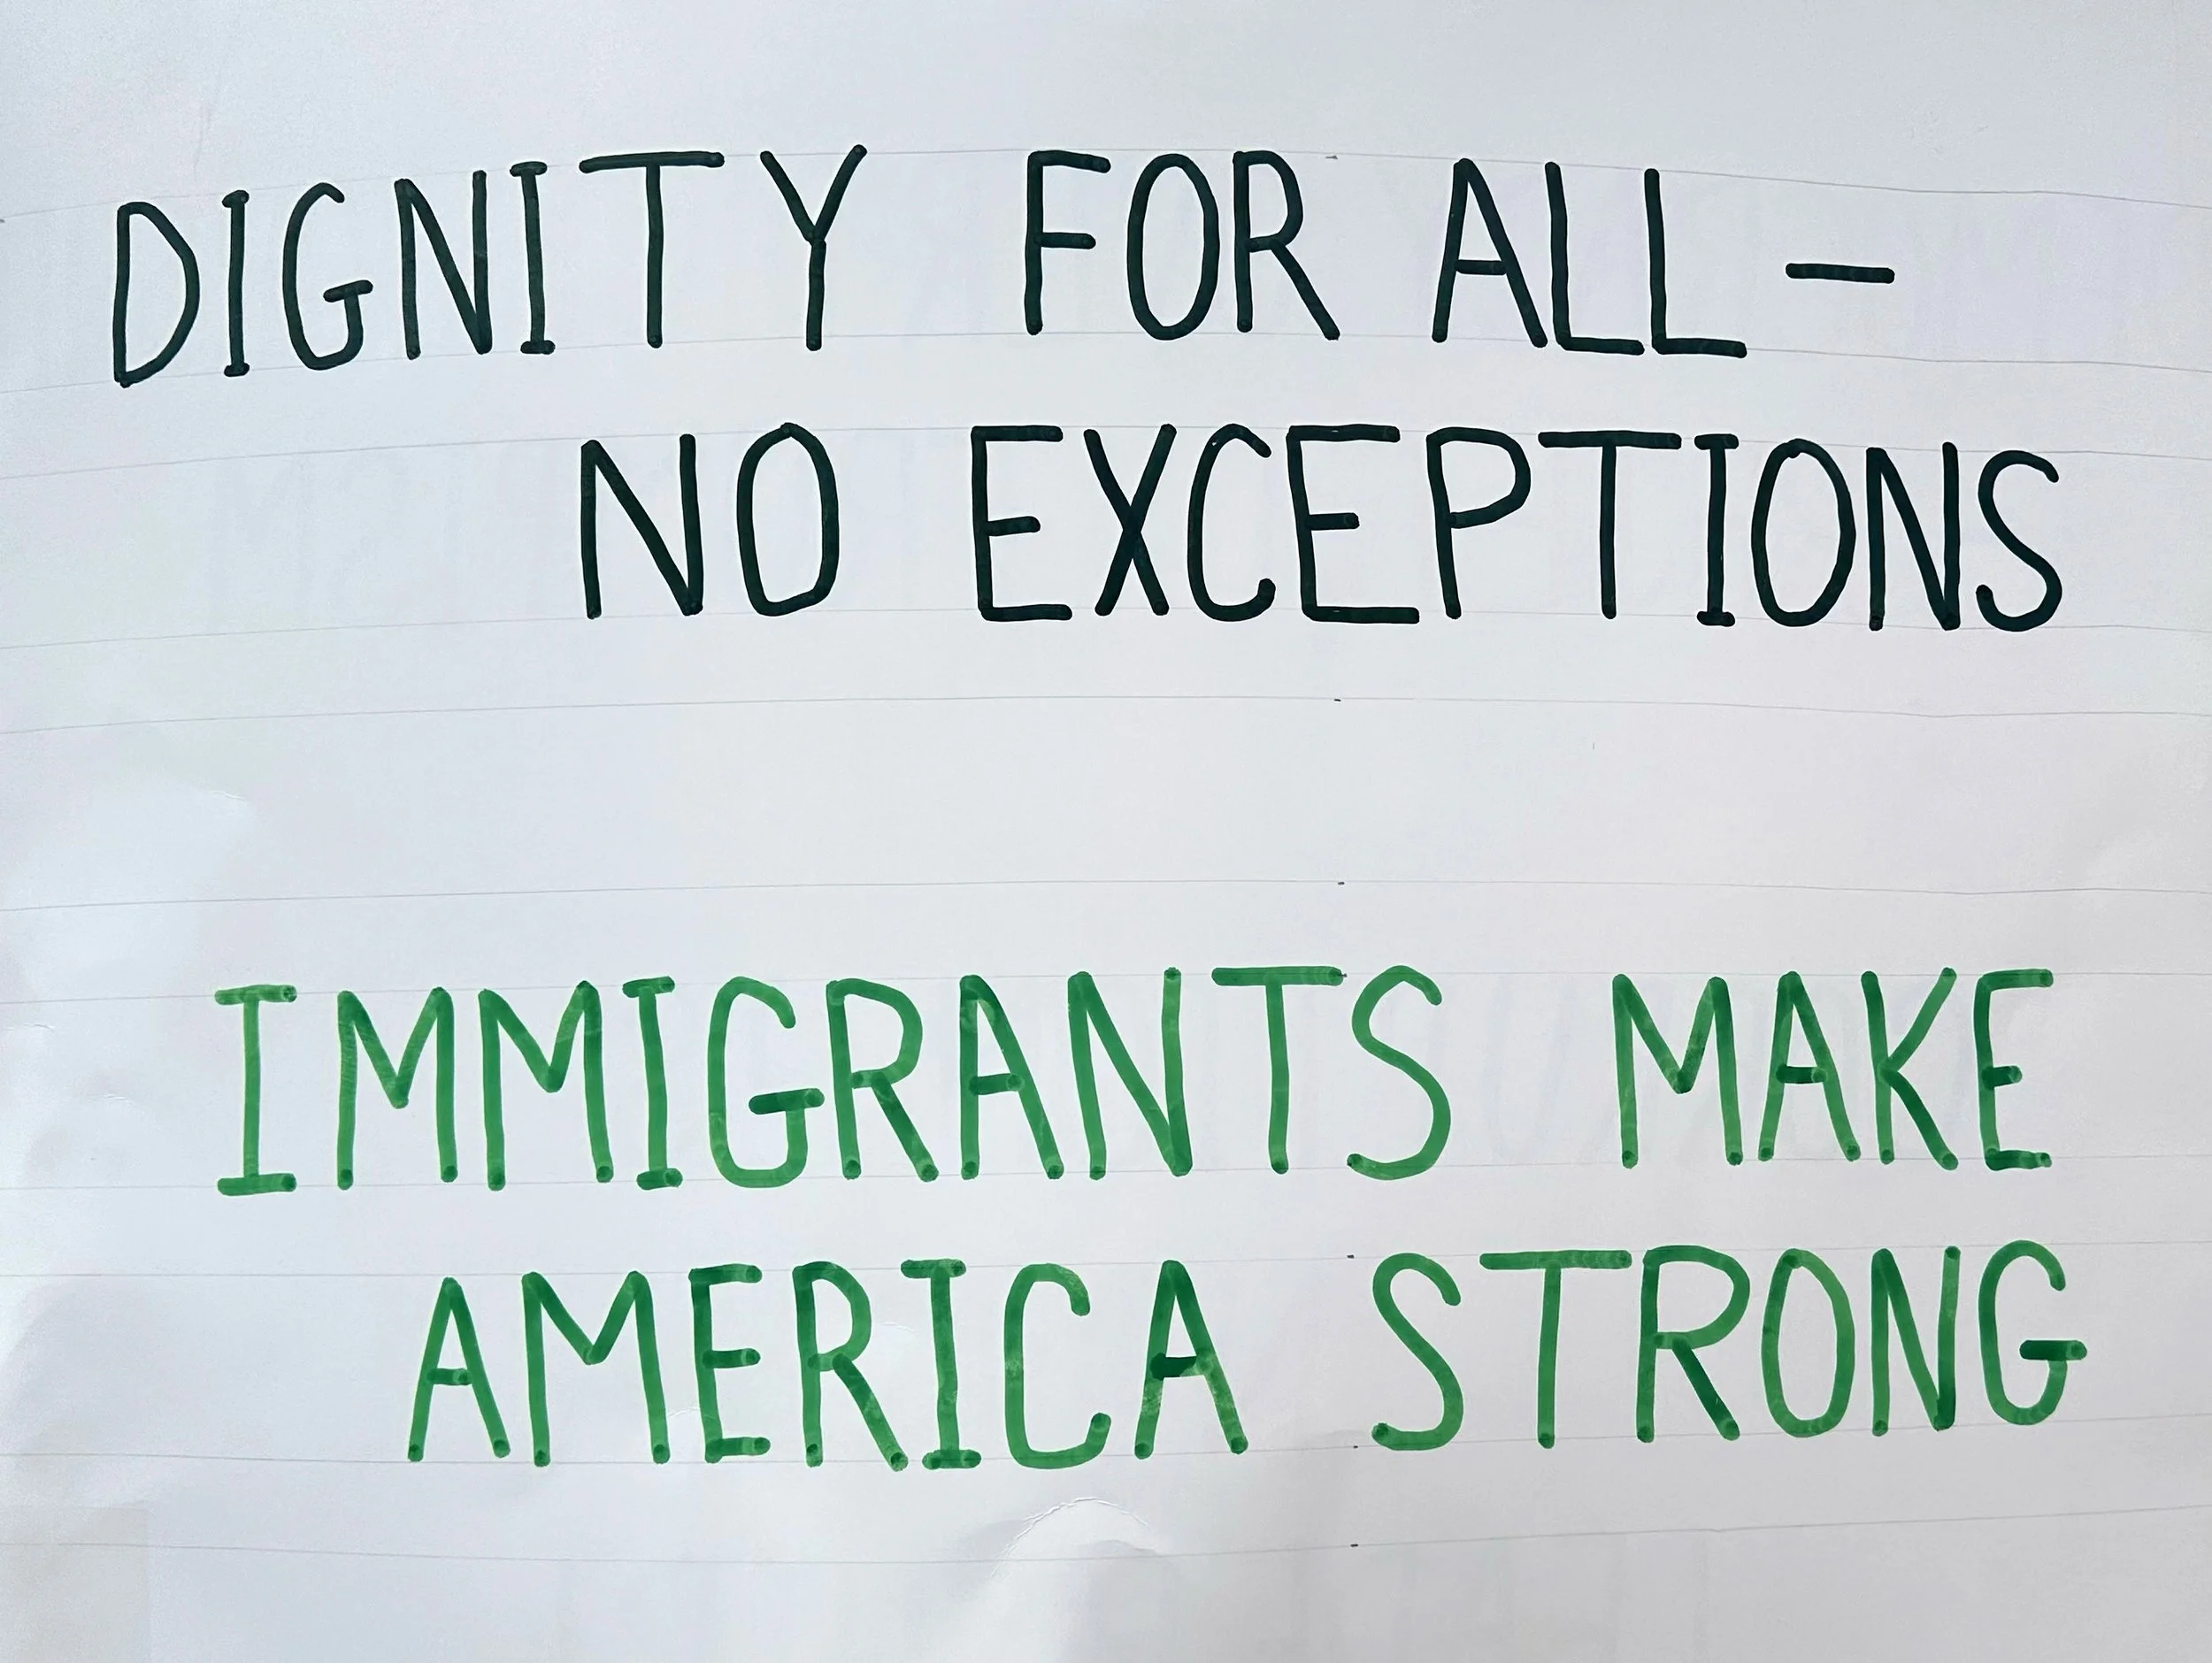 DIGNITY FOR ALL—
NO EXCEPTIONS
IMMIGRANTS MAKE
AMERICA STRONG